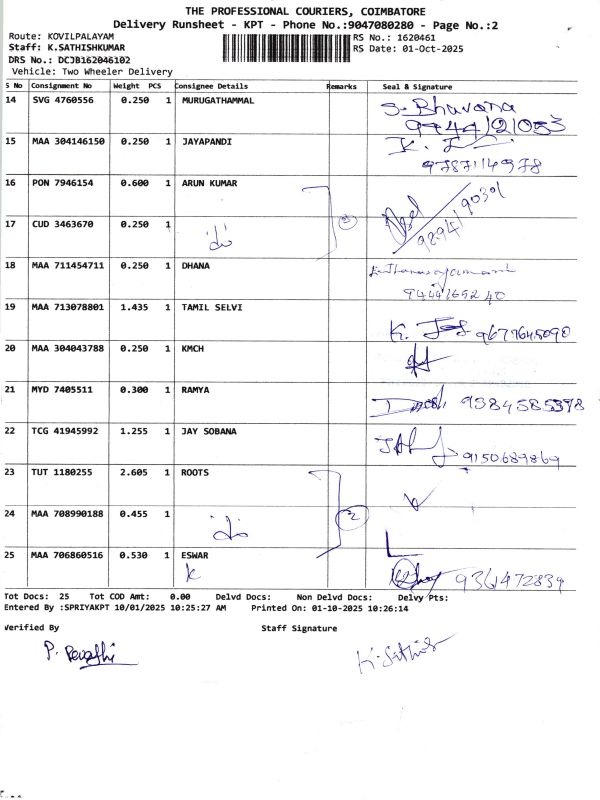 THE PROFESSIONAL COURIERS, COIMBATORE
Delivery Runsheet - KPT - Phone No.:9047080280 - Page No.:2
Route: KOVILPALAYAM
RS No.: 1620461
Staff: K.SATHISHKUMAR
RS Date: 01-Oct-2025
DRS No.: DCJB162046102
Vehicle: Two Wheeler Delivery
S No Consignment No Weight PCS Consignee Details Remarks Seal & Signature
14 SVG 4760556 0.250 1 MURUGATHAMMAL S. Bhavana
9744121053
15 MAA 304146150 0.250 1 JAYAPANDI
9787114978
16 PON 7946154 0.600 1 ARUN KUMAR
17 CUD 3463670 0.250 1
18 MAA 711454711 0.250 1 DHANA
19 MAA 713078801 1.435 1 TAMIL SELVI
9677645090
20 MAA 304043788 0.250 1 KMCH
21 MYD 7405511 0.300 1 RAMYA
9384585398
22 TCG 41945992 1.255 1 JAY SOBANA
9150689869
23 TUT 1180255 2.605 1 ROOTS
24 MAA 708990188 0.455 1
2
25 MAA 706860516 0.530 1 ESWAR
9361472839
Tot Docs: 25 Tot COD Amt: 0.00 Delvd Docs: Non Delvd Docs: Delvy Pts:
Entered By :SPRIYAKPT 10/01/2025 10:25:27 AM Printed On: 01-10-2025 10:26:14
Verified By Staff Signature
P. Revathi K. Sathis